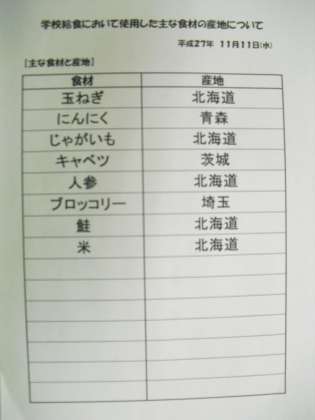 学校給食において使用した主な食材の産地について
平成27年 11月11日(水)
[主な食材と産地]
食材 産地
玉ねぎ 北海道
にんにく 青森
じゃがいも 北海道
キャベツ 茨城
人参 北海道
ブロッコリー 埼玉
鮭 北海道
米 北海道